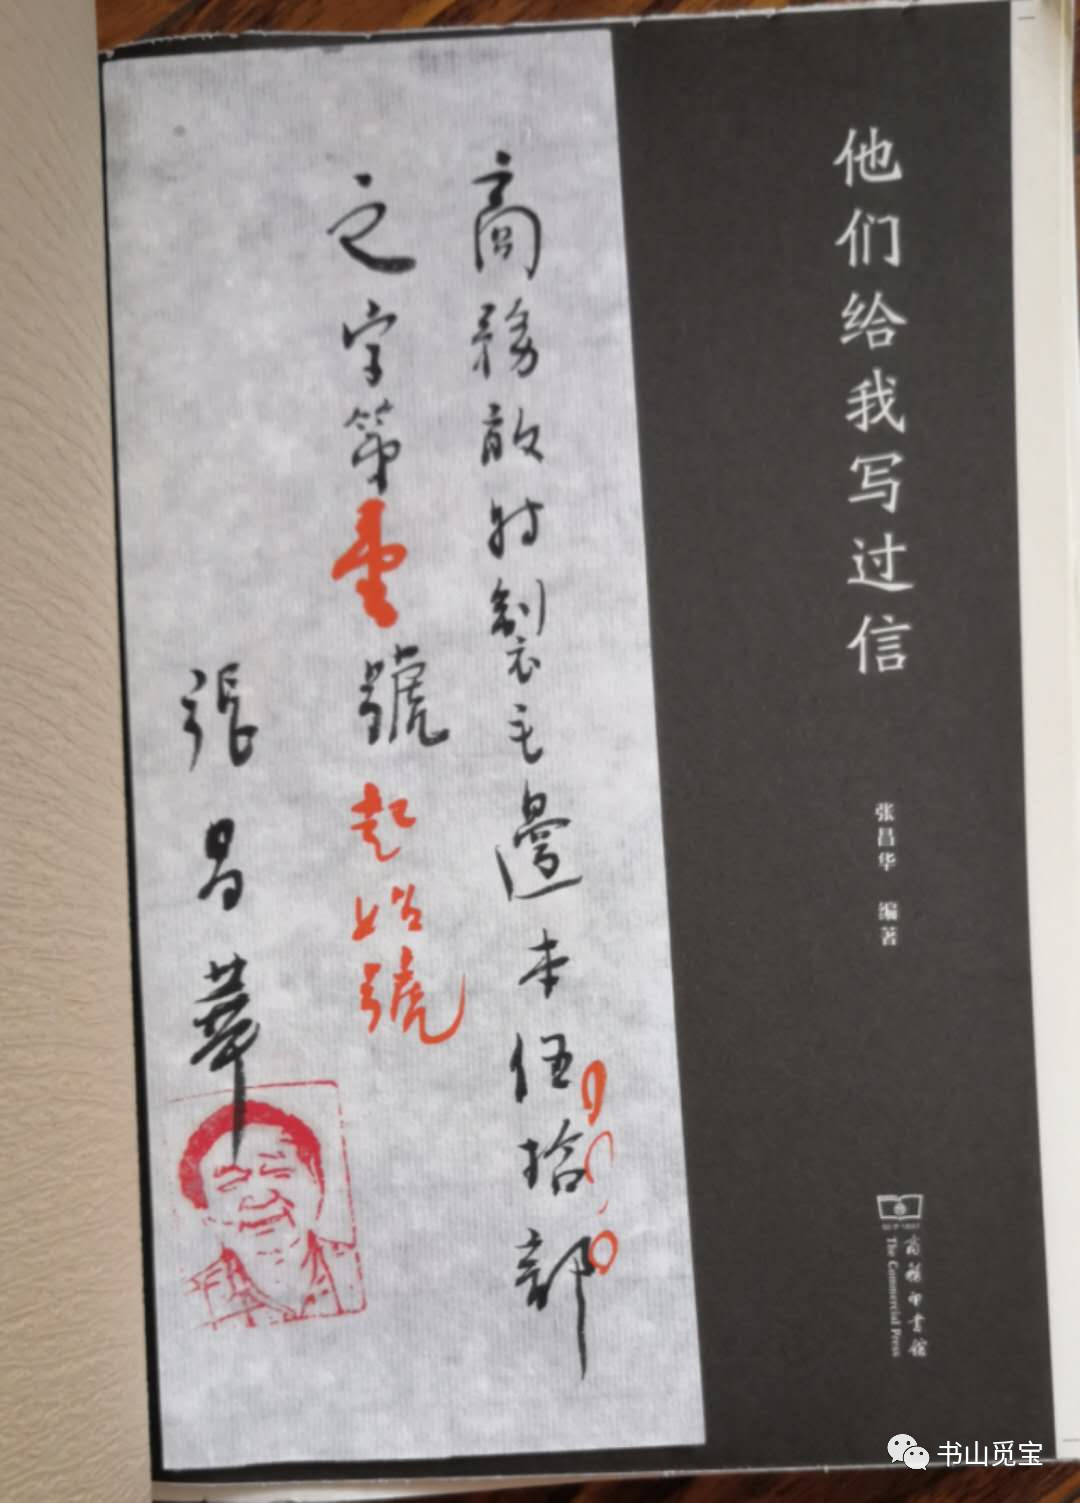 他们给我写过信
张昌华 编著
商务印书馆
The Commercial Press
商務啟特製毛邊本伍拾部
之字第壹號起始號
張昌華
书山觅宝